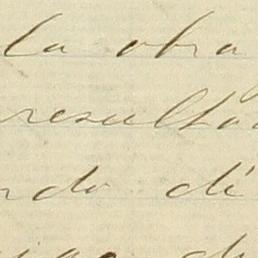 la obra
resulta
ndo di